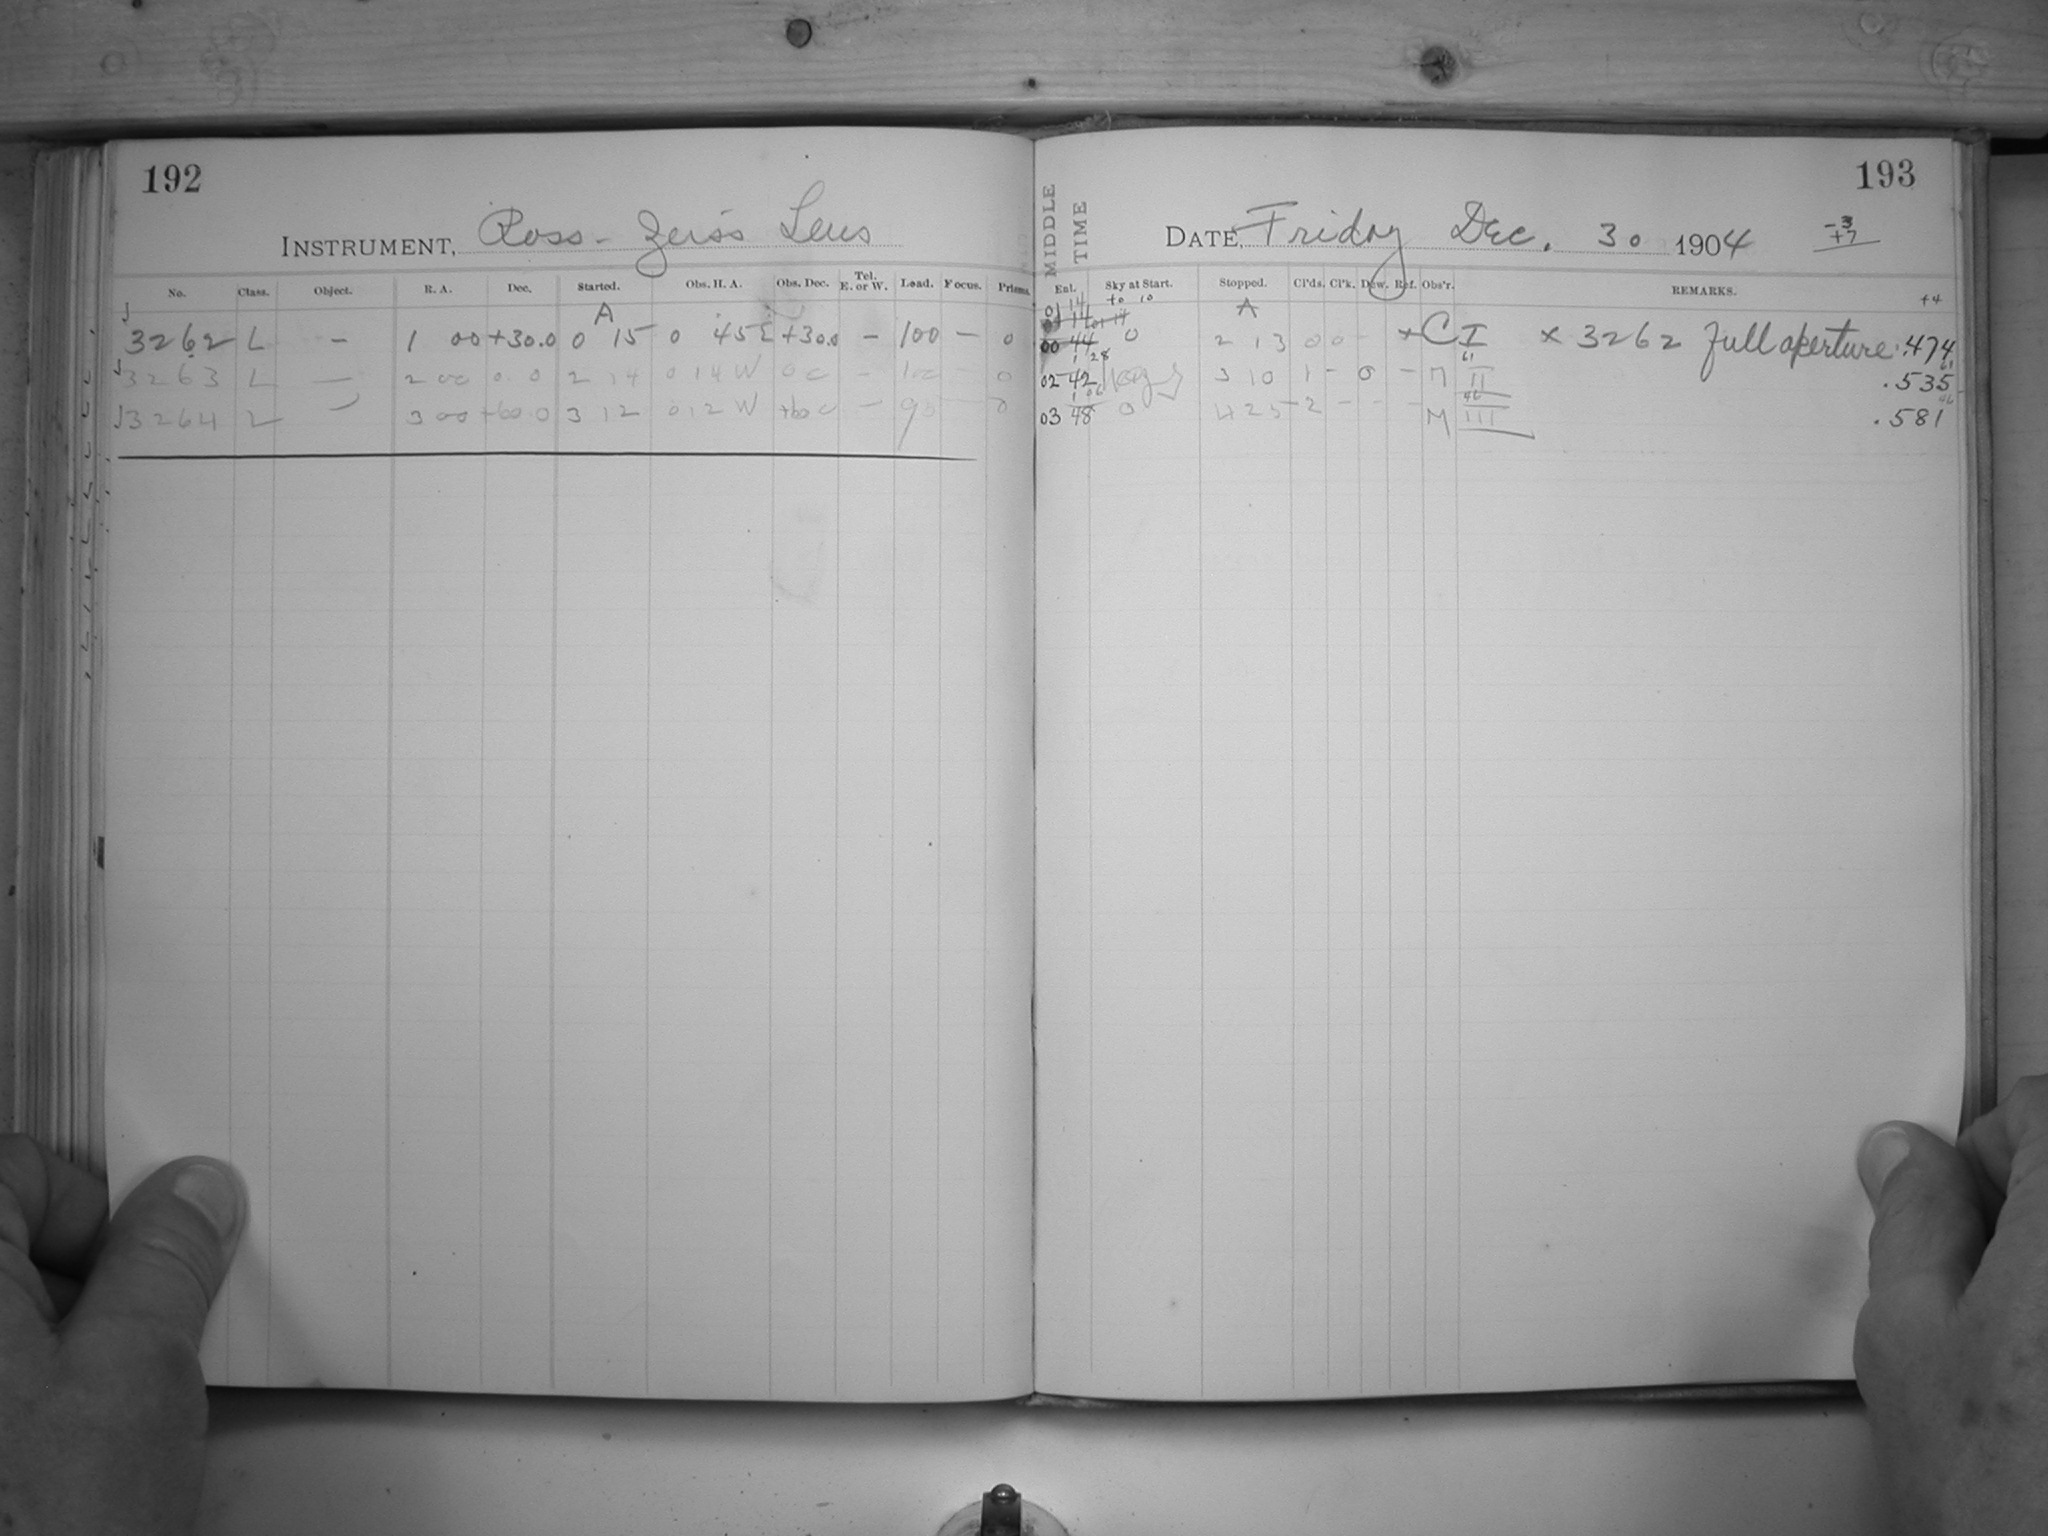 192
INSTRUMENT, Ross-Zeiss Lens
No. Class. Object. R. A. Dec. Started. Obs. H. A. Obs. Dec. Tel. E. or W. Load. Focus. Prisms.
A
3262 L — 1 00 +30.0 0 15 0 45 E +30.0 — 100 — 0
3263 L — 2 00 0.0 2 14 0 14 W 00 — 100 — 0
3264 L — 3 00 +60.0 3 12 0 12 W +60 0 — 90 — 0
193
MIDDLE TIME
DATE, Friday Dec. 30 1904
-3
+7
Ent. Sky at Start. Stopped. Cl'ds. Cl'k. Dew. Ref. Obs'r. REMARKS.
+4
01 14 A
00 44 0 2 13 0 0 - × C I × 3262 full aperture .474
1 28 61 61
02 42 3 10 1 - 0 - M II .535
1 06 46
03 48 0 4 25 2 - - - M III .581